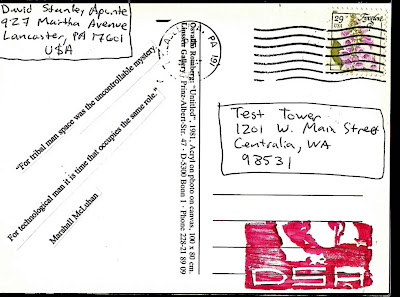 David Stanley Aponte
927 Martha Avenue
Lancaster, PA 17601
USA
PA 191
29
USA
Foxglove
"For tribal man space was the uncontrollable mystery
For technological man it is time that occupies the same role."
Marshall McLuhan
Osvaldo Romberg: "Untitled", 1981, Acryl on photo on canvas, 100 x 80 cm.
Gallery · Prinz-Albert-Str. 47 · D-5300 Bonn 1 · Phone 228-21 89 09
Test Tower
1201 W. Main Street
Centralia, WA
98531